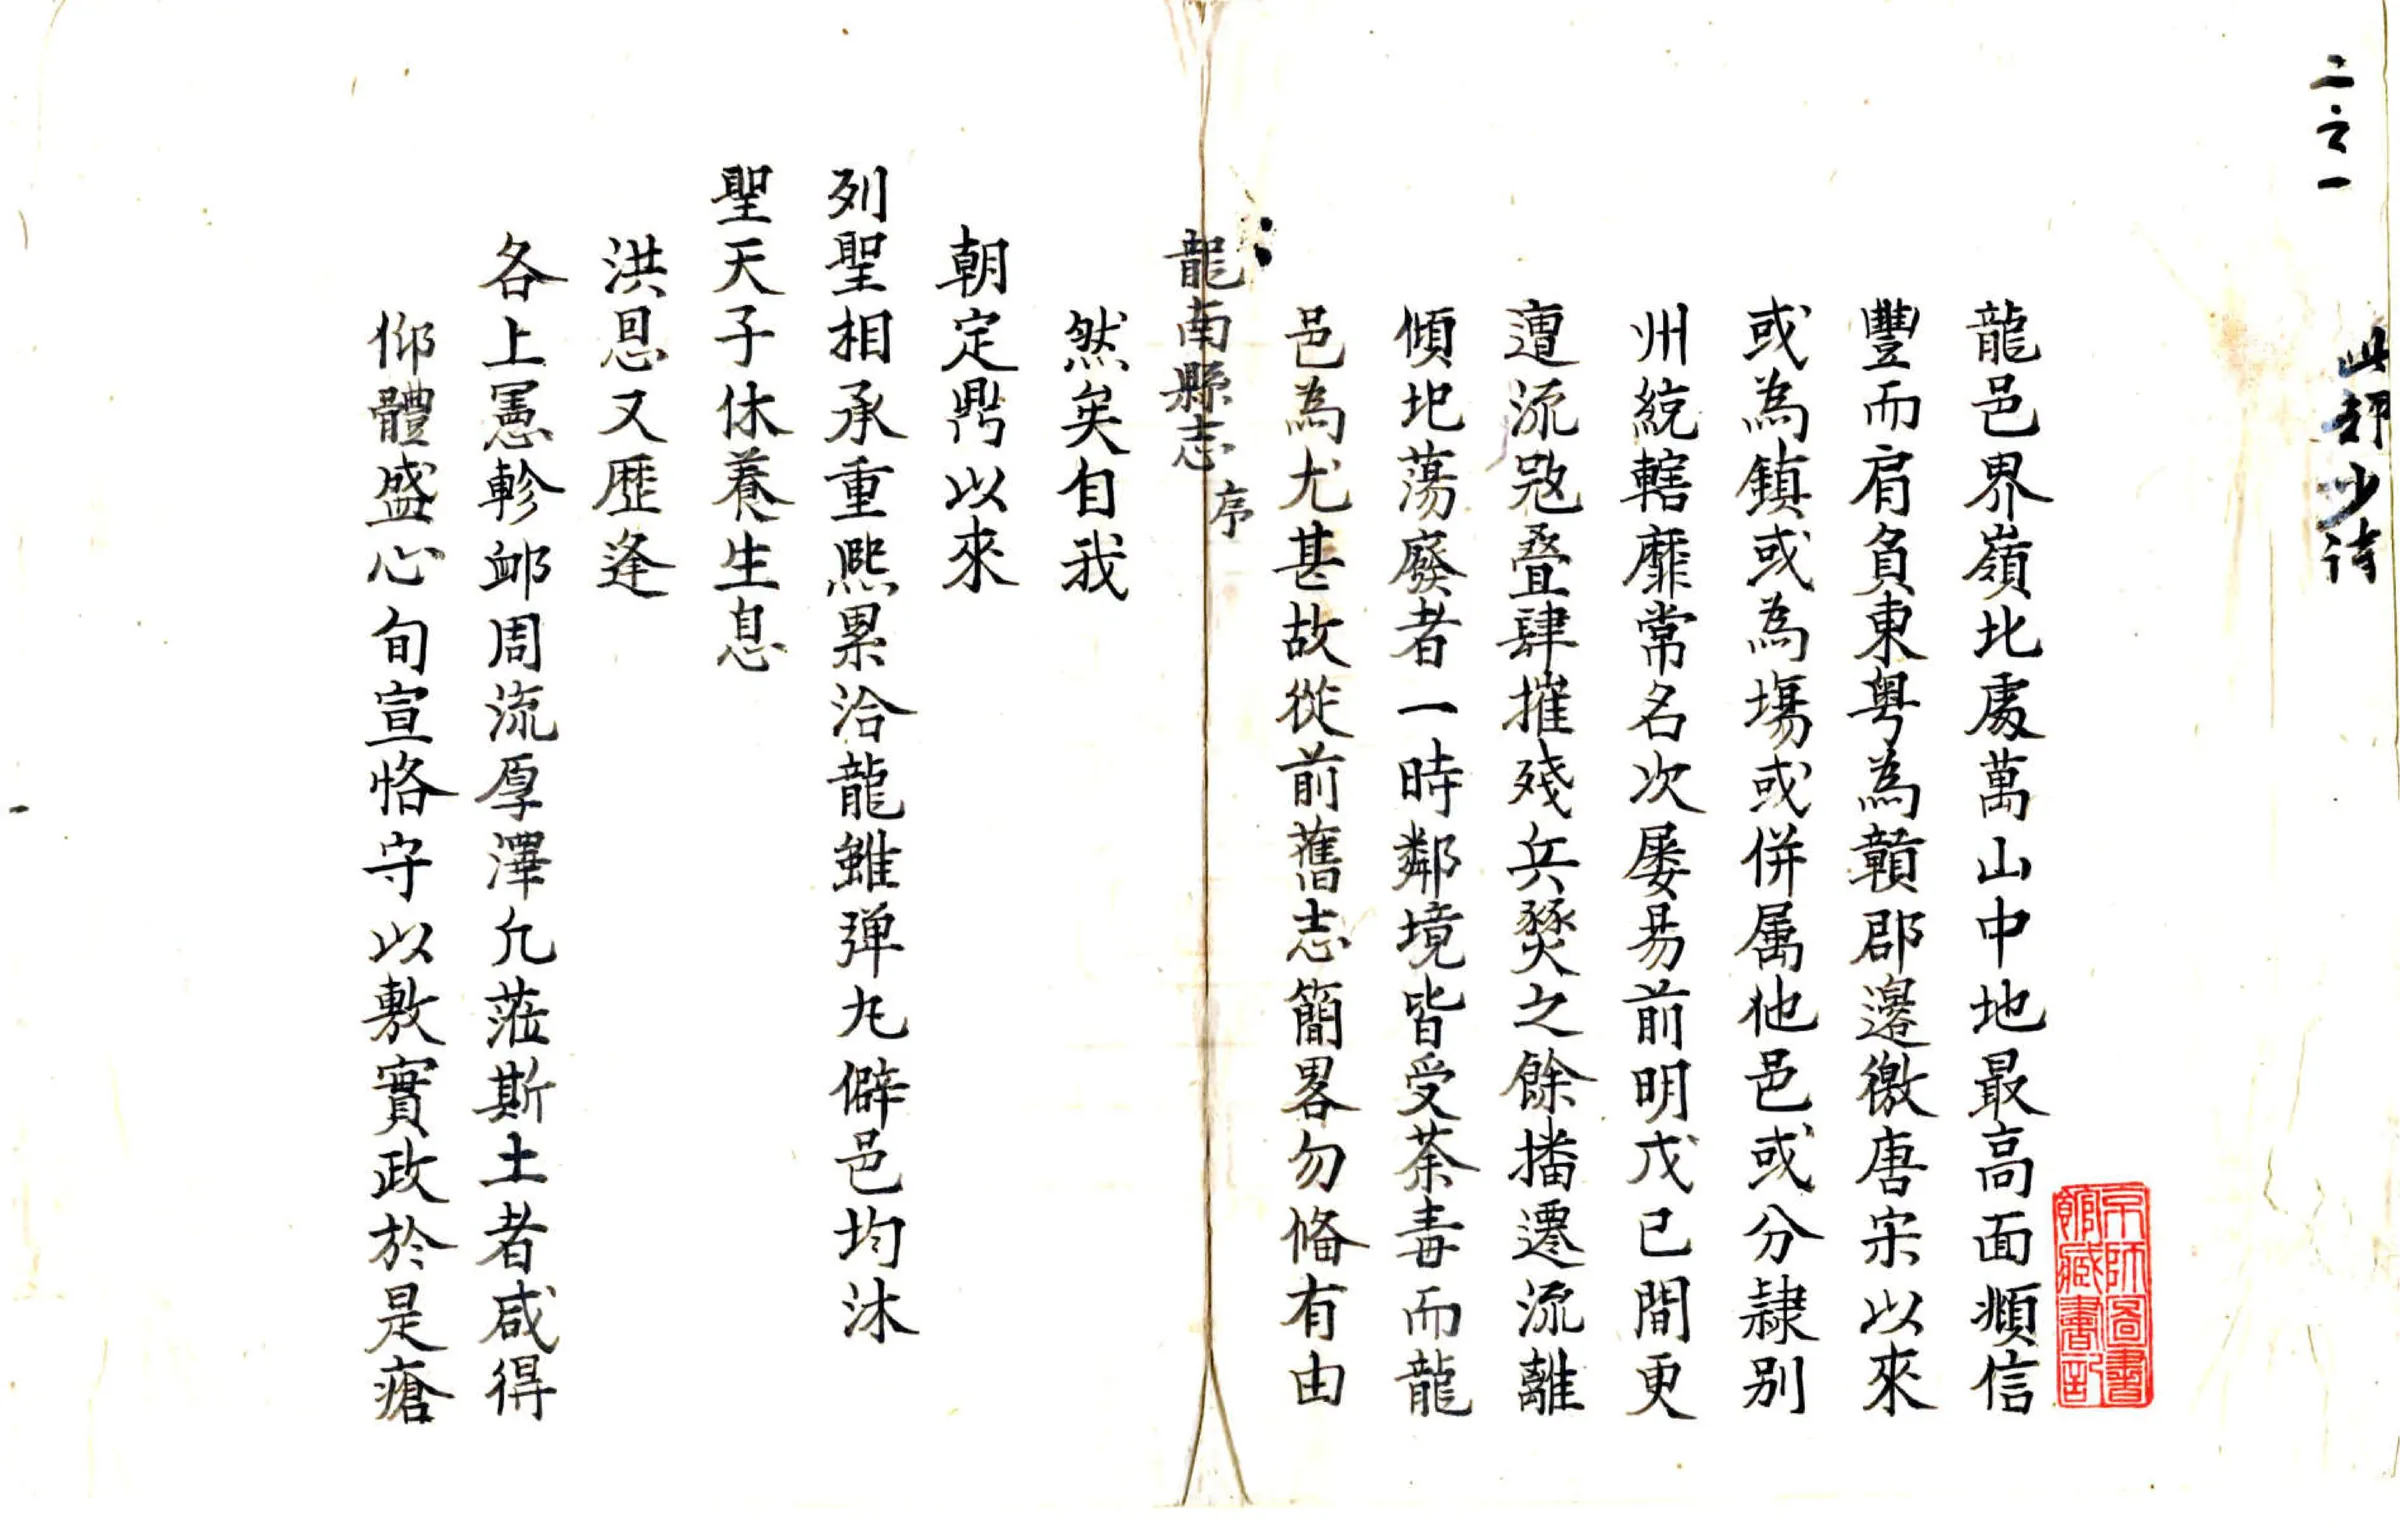 二六一
此部少詩
龍邑界嶺北處萬山中地最高面頫信
豐而肩負東粤為贑郡邊徼唐宋以來
或為鎮或為塲或併属他邑或分隷别
州統轄靡常名次屡昜前明戊已間更
遭流宼叠肆摧殘兵燹之餘播遷流離
傾圯蕩廢者一時鄰境皆受荼毒而龍
邑為尤甚故從前舊志簡畧勿俻有由
龍南縣志 序
然矣自我
朝定鼎以來
列聖相承重熙累洽龍雖弹丸僻邑均沐
聖天子休養生息
洪恩又歴逢
各上憲軫䘏周流厚澤凢蒞斯土者咸得
仰體盛心旬宣恪守以敷實政於是瘡
京師圖書館藏書記